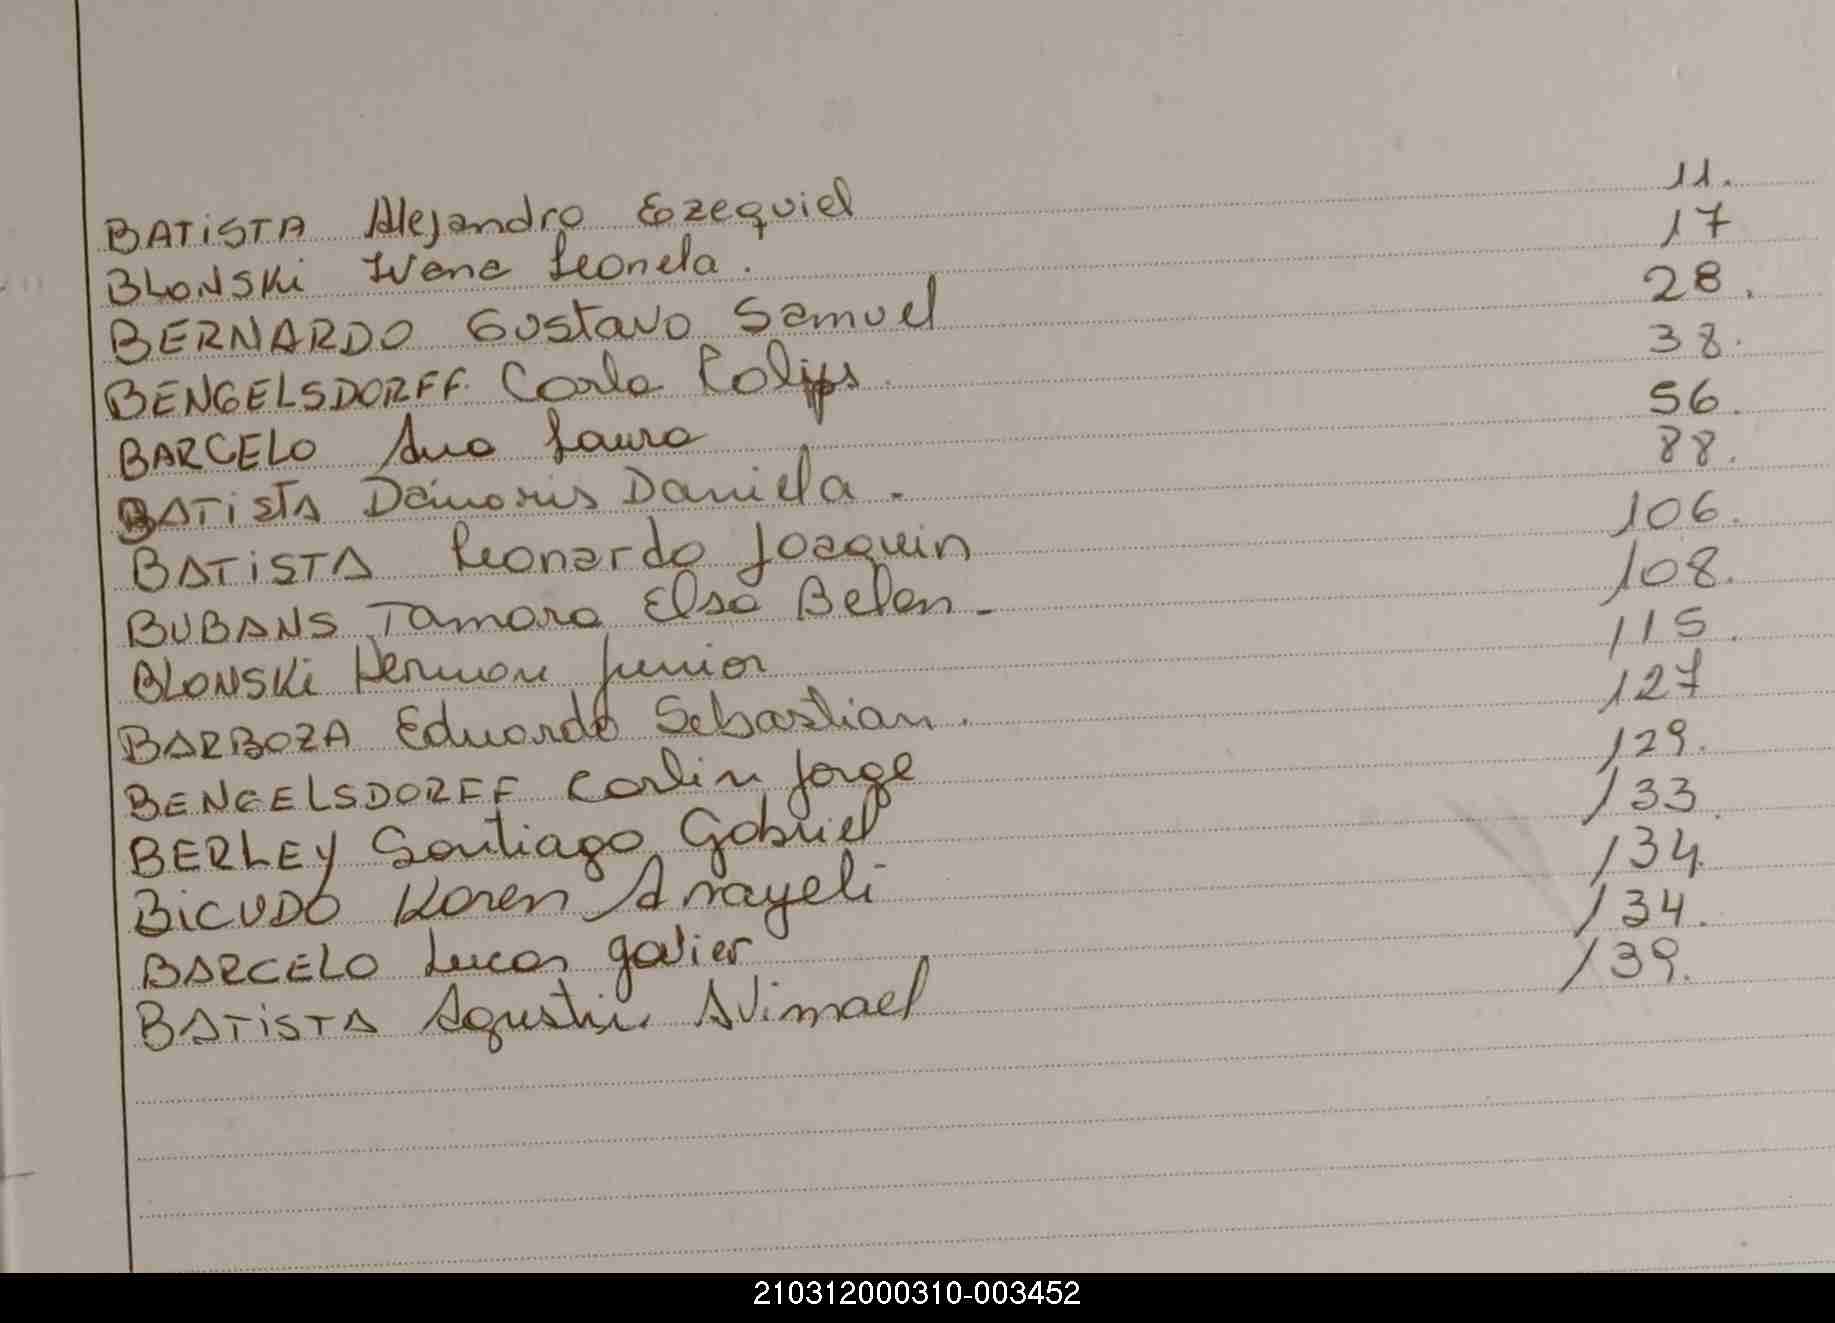 BATISTA Alejandro Ezequiel 11.
BLONSKi Ivana Leonela. 17
BERNARDO Gustavo Samuel 28.
BENGELSDORFF Carla 38.
BARCELO Ana Laura 56.
BATiSTA Daniela. 88.
BATiSTA Leonardo Joaquin 106.
BUBANS Tamara Elsa Belen- 108.
BLONSKi Hernan Junior 115.
BARBOZA Eduardo Sebastian. 127
BENGELSDORFF Carlin Jorge 129.
BERLEY Santiago Gabriel 133.
BiCUDO Karen Anayeli 134.
BARCELO Lucas Gavier 134.
BATiSTA Agustin Avimael 139.
210312000310-003452